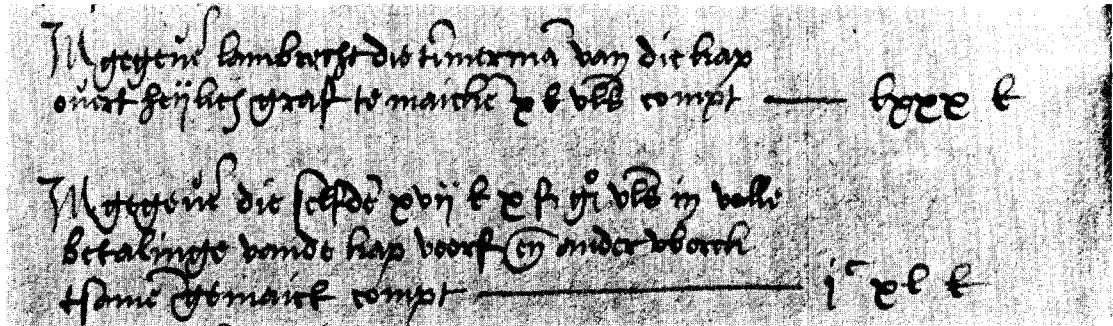 Item gegeue lambrecht die timerma van die kap
ouert heijlich graf te maicke x £ vls compt — lxxx £
Item gegeue die selfde xvij £ x s gr vls in volle
betalinge vande kap voors en ander werck
tsame gemaict compt — jc xl £